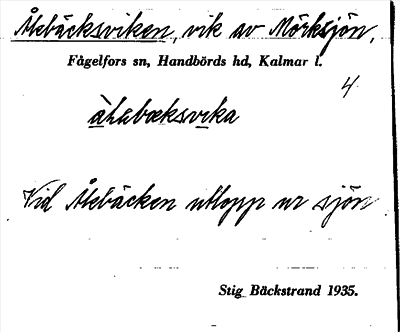 Åkbäcksviken, vik av Mörksjön,
Fågelfors sn, Handbörds hd, Kalmar l.
4
Vid Åkbäcken utlopp ur sjön
Stig Bäckstrand 1935.